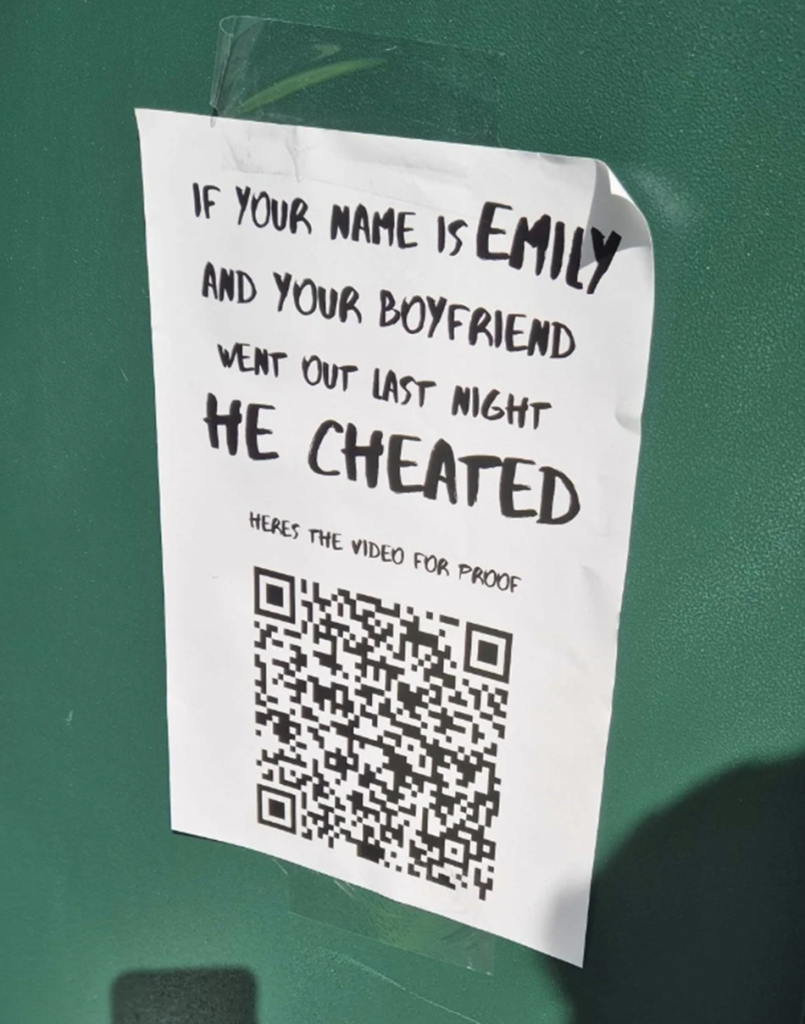 IF YOUR NAME IS EMILY
AND YOUR BOYFRIEND
WENT OUT LAST NIGHT
HE CHEATED
HERES THE VIDEO FOR PROOF